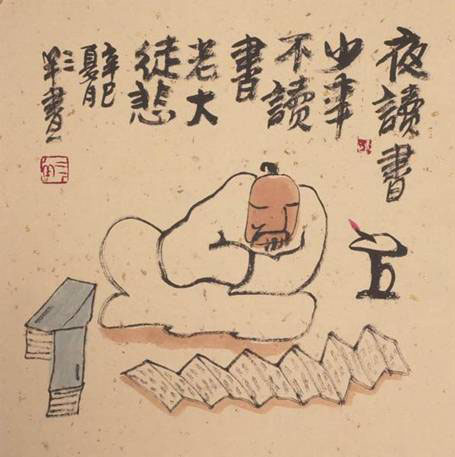 夜讀書
少年
不讀
書
老大
徒悲
辛巳
夏月